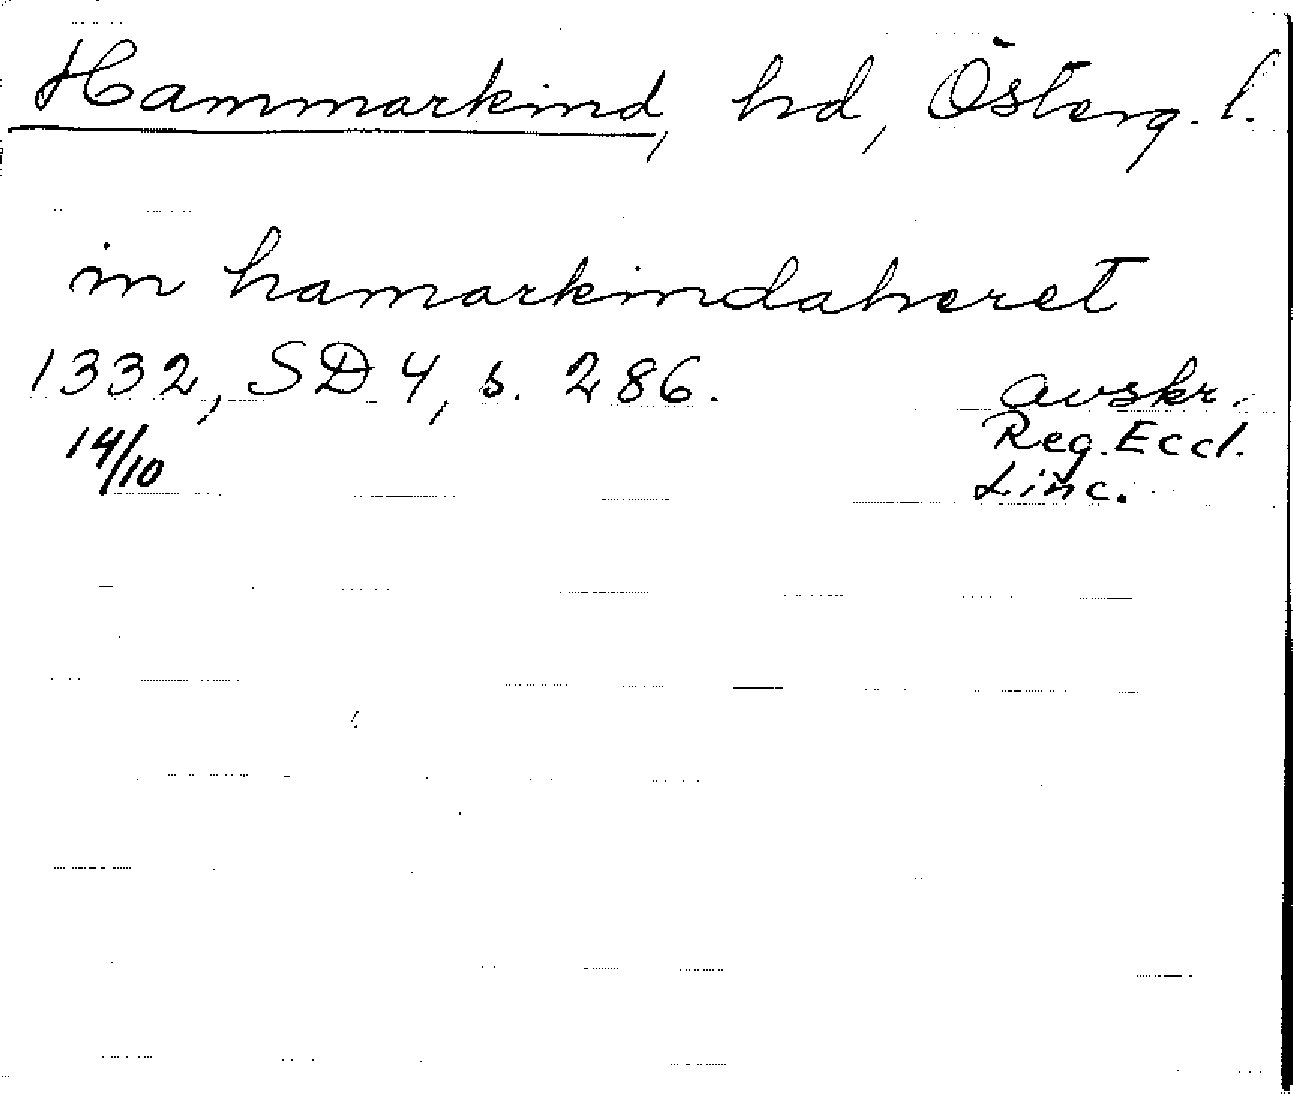 Hammarkind, hd, Österg. l.
in hamarkindaheret
1332, SD 4, s. 286.
14/10
avskr.
Reg. Eccl.
Linc.